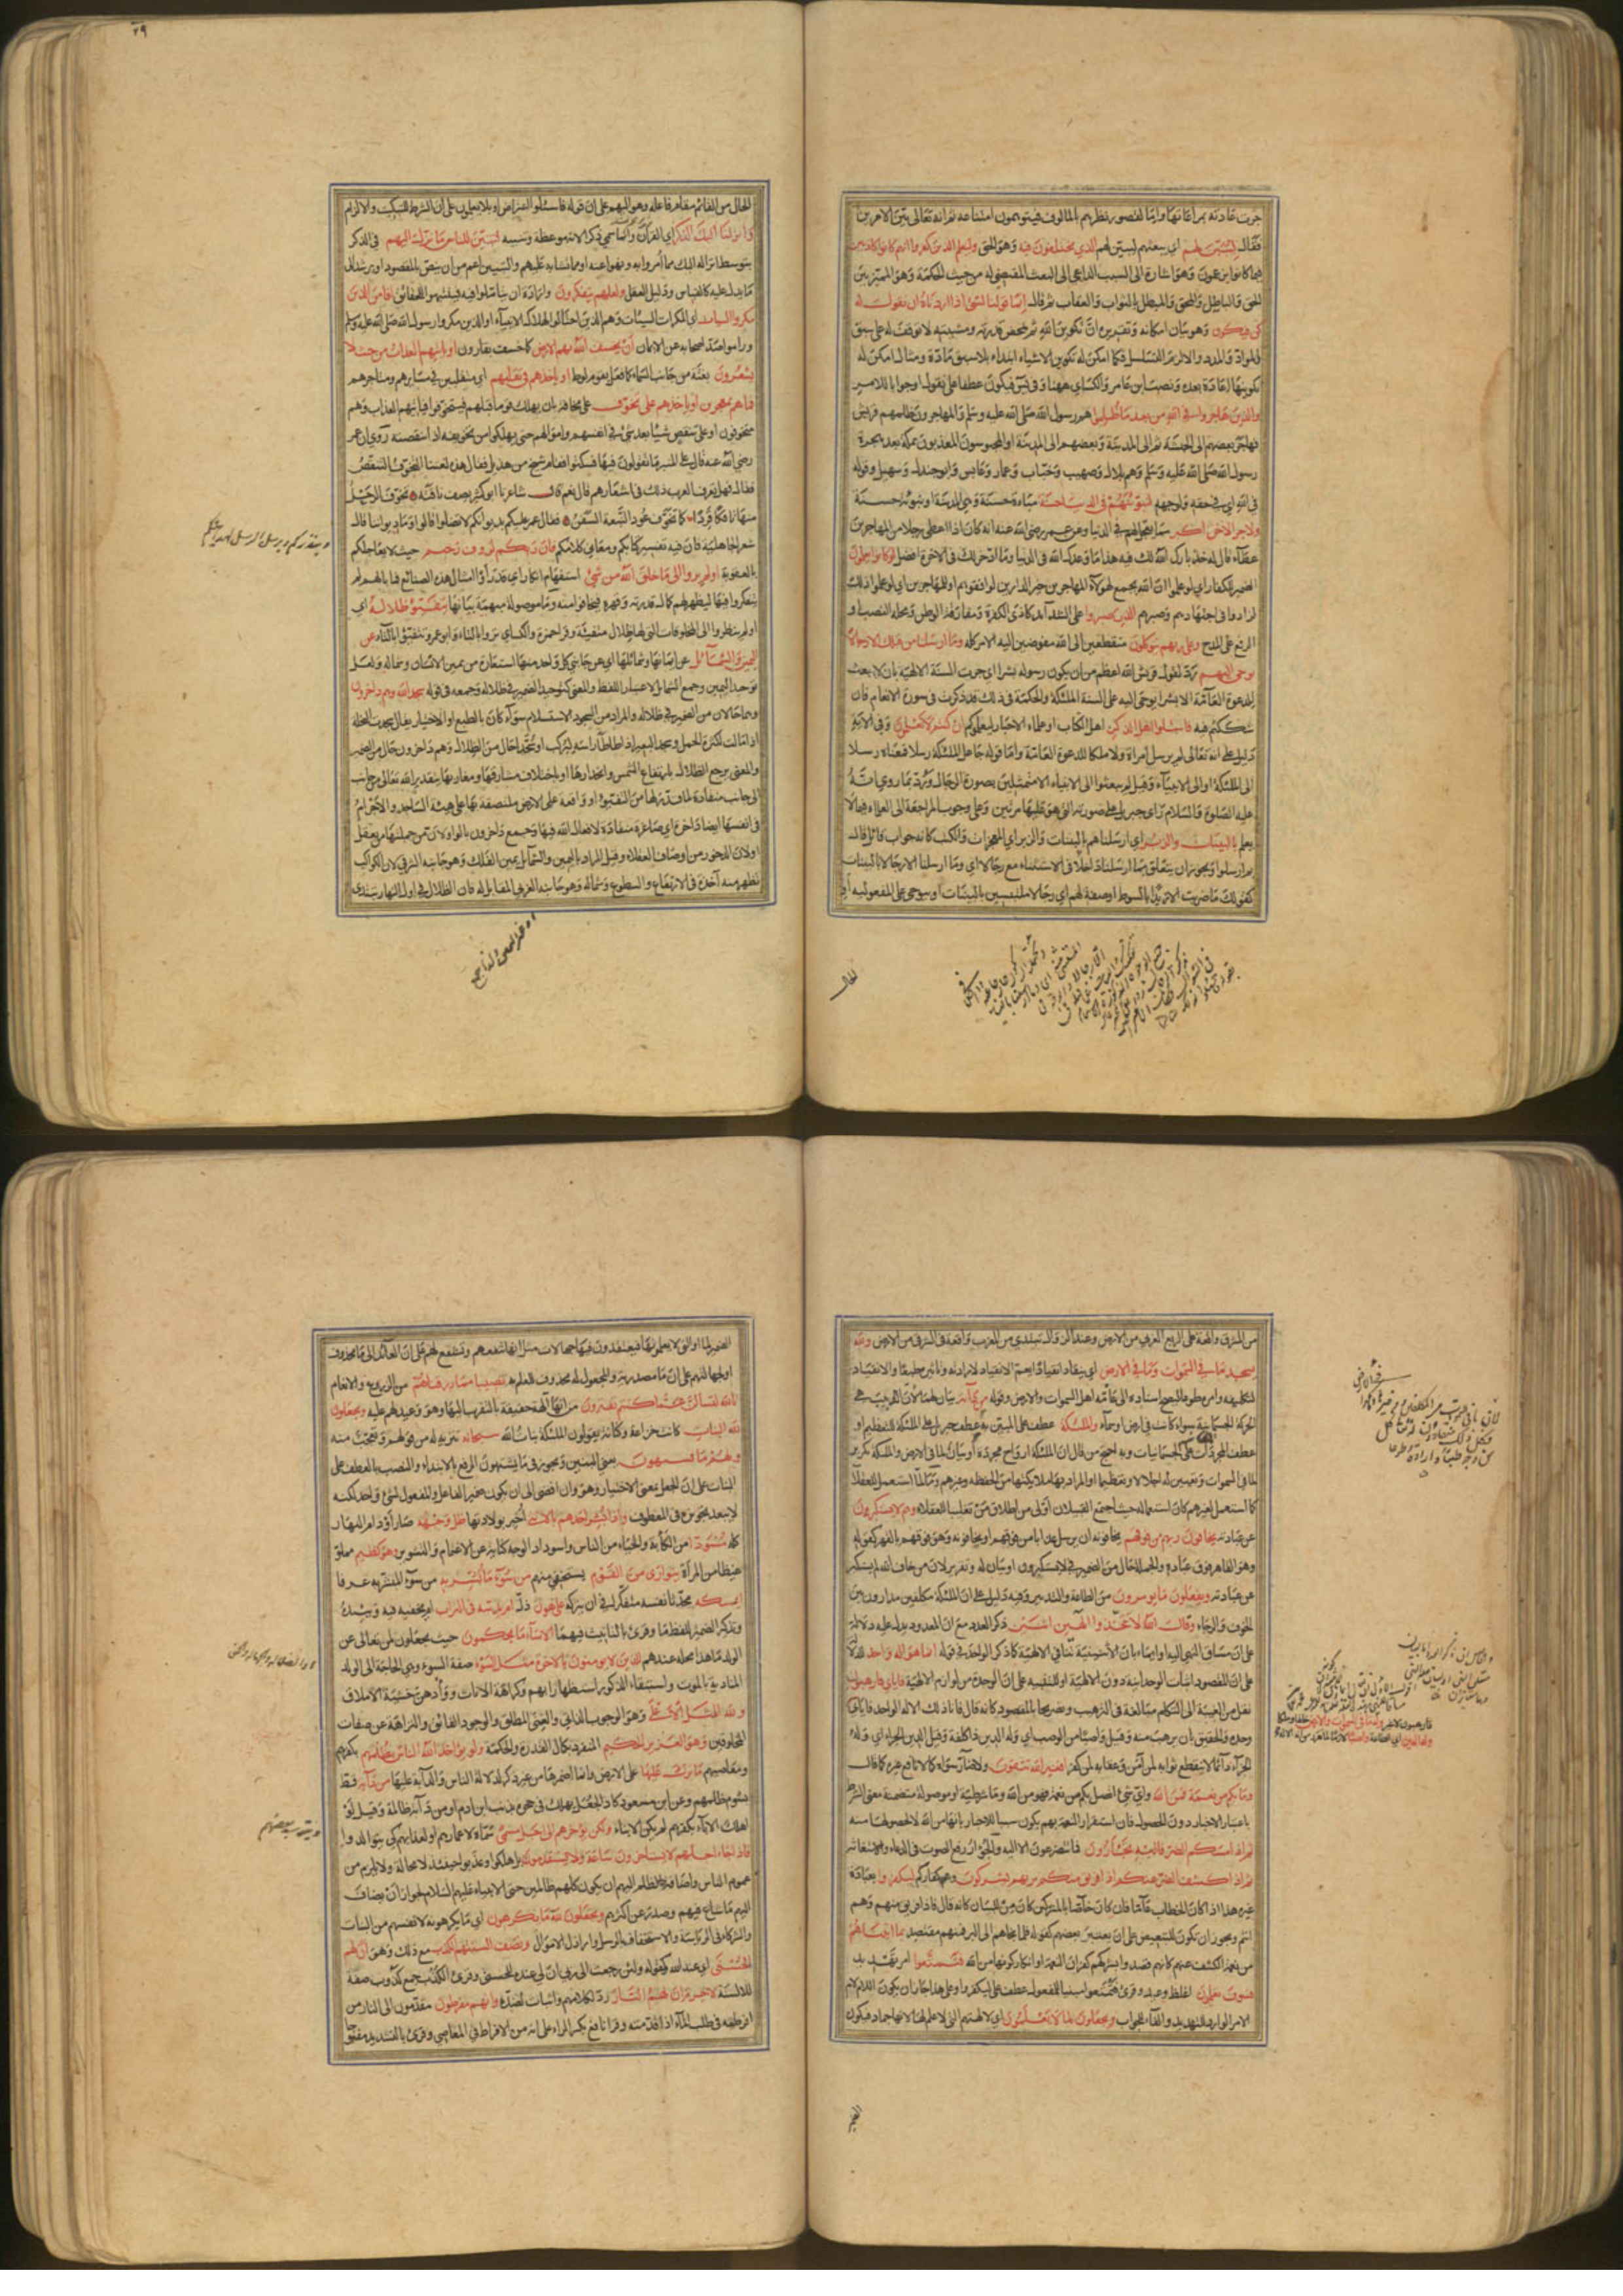 جرت عادته بمراعاتها واما لقصور نظرهم بالمألوف فيتوهمون امتناعه ثم انه تعالى بين الامرين
فقال ليبين لهم اي يبعثهم ليبين لهم الذي يختلفون فيه وهو الحق وليعلم الذين كفروا انهم كانوا كاذبين
فيما كانوا يزعمون وهو اشارة الى السبب الداعي الى البعث المقتضي له من حيث الحكمة وهو المميز بين
الحق والباطل والمحق والمبطل بالثواب والعقاب ثم قال انما قولنا لشئ اذا اردناه ان نقول له
كن فيكون وهو بيان امكانه وتقريره ان تكوين الله ثم بمحض قدرته ومشيته لا توقف له على سبق
المواد والمدد والا لزم التسلسل فكما امكن له تكوين الاشياء ابتداء بلا سبق مادة ومثال امكن له
تكوينها اعادة بعده ونصب ابن عامر والكسائي ههنا وفي يس فيكون عطفا على نقول او جوابا للامر
والذين هاجروا في الله من بعد ما ظلموا هم رسول الله صلى الله عليه وسلم والمهاجرون ظلمهم قريش
فهاجر بعضهم الى الحبشة ثم الى المدينة وبعضهم الى المدينة او المحبوسون المعذبون بمكة بعد هجرة
رسول الله صلى الله عليه وسلم وهم بلال وصهيب وخباب وعمار وعابس وابو جندل وسهيل وقوله
في الله اي في حقه ولوجهه لنبوئنهم في الدنيا حسنة مباءة حسنة وهي المدينة او تبوئة حسنة
ولاجر الاخرة اكبر مما يعجل لهم في الدنيا وعن عمر رضي الله عنه انه كان اذا اعطى رجلا من المهاجرين
عطاء قال له خذ بارك الله لك فيه هذا ما وعدك الله في الدنيا وما ادخر لك في الاخرة افضل لو كانوا يعلمون
الضمير للكفار اي لو علموا ان الله يجمع لهؤلاء المهاجرين خير الدارين لوافقوهم او للمهاجرين اي لو علموا ذلك
لزادوا في اجتهادهم وصبرهم الذين صبروا على الشدائد كاذى الكفرة ومفارقة الوطن ومحله النصب او
الرفع على المدح وعلى ربهم يتوكلون منقطعين الى الله مفوضين اليه الامر كله وما ارسلنا من قبلك الا رجالا
يوحى اليهم رد لقول قريش الله اعظم من ان يكون رسوله بشرا اي جرت السنة الالهية بان لا يبعث
للدعوة العامة الا بشرا يوحى اليه على السنة الملئكة والحكمة في ذلك قد ذكرت في سورة الانعام فان
شككتم فيه فاسئلوا اهل الذكر اهل الكتاب او علماء الاحبار ليعلموكم ان كنتم لا تعلمون وفي الاية
دليل على انه تعالى لم يرسل امراة ولا ملكا للدعوة العامة واما قوله جاعل الملئكة رسلا فمعناه رسلا
الى الملئكة او الى الانبياء وقيل لم يبعثوا الى الانبياء الا متمثلين بصورة الرجال ورد بما روي انه
عليه الصلوة والسلام رأى جبريل على صورته التي هو عليها مرتين وعلى وجوب المراجعة الى العلماء فيما لا
يعلم بالبينات والزبر اي ارسلناهم بالبينات والزبر اي المعجزات والكتب كانه جواب قائل قال
بم ارسلوا ويجوز ان يتعلق بما ارسلنا داخلا في الاستثناء مع رجالا اي وما ارسلنا الا رجالا بالبينات
كقولك ما ضربت الا زيدا بالسوط او صفة لهم اي رجالا ملتبسين بالبينات او بيوحى على المفعولية او
الحال
٢٩
الحال من القائم مقام فاعله وهو اليهم على ان قوله فاسئلوا اعتراض او بلا تعلمون على ان الشرط للتبكيت والالزام
وانزلنا اليك الذكر اي القرآن وانما سمي ذكرا لانه موعظة وتنبيه لتبين للناس ما نزل اليهم في الذكر
بتوسط انزاله اليك مما امروا به ونهوا عنه او مما تشابه عليهم والتبيين اعم من ان ينص بالمقصود او يرشد الى
ما يدل عليه كالقياس ودليل العقل ولعلهم يتفكرون وارادة ان يتأملوا فيه فيتنبهوا للحقائق افامن الذين
مكروا السيئات اي المكرات السيئات وهم الذين احتالوا لهلاك الانبياء او الذين مكروا رسول الله صلى الله عليه وسلم
وراموا صد اصحابه عن الايمان ان يخسف الله بهم الارض كما خسف بقارون او ياتيهم العذاب من حيث لا
يشعرون بغتة من جانب السماء كما فعل بقوم لوط او ياخذهم في تقلبهم اي متقلبين في مسايرهم ومتاجرهم
فما هم بمعجزين او ياخذهم على تخوف على مخافة بان يهلك قوما قبلهم فيتخوفوا فياتيهم العذاب وهم
متخوفون او على تنقص شيئا بعد شئ في انفسهم واموالهم حتى يهلكوا من تخوفته اذا تنقصته روي ان عمر
رضي الله عنه قال على المنبر ما تقولون فيها فسكتوا فقام شيخ من هذيل فقال هذه لغتنا التخوف التنقص
فقال فهل تعرف العرب ذلك في اشعارهم قال نعم قال شاعرنا ابو كثير يصف ناقته تخوف الرحل
منها تامكا قردا كما تخوف عود النبعة السفن فقال عمر عليكم بديوانكم لا تضلوا قالوا وما ديواننا قال
شعر الجاهلية فان فيه تفسير كتابكم ومعاني كلامكم فان ربكم لرؤف رحيم حيث لا يعاجلكم
بالعقوبة اولم يروا الى ما خلق الله من شئ استفهام انكار اي قد رأوا امثال هذه الصنائع فما بالهم لم
يتفكروا فيها ليظهر لهم كمال قدرته وقهره فيخافوا منه وما موصولة مبهمة بيانها يتفيؤ ظلاله اي
اولم ينظروا الى المخلوقات التي لها ظلال متفيئة وقرأ حمزة والكسائي تروا بالتاء وابو عمرو تتفيؤ بالتاء عن
اليمين والشمائل عن ايمانها وشمائلها اي عن جانبي كل واحد منها استعارة من يمين الانسان وشماله ولعل
توحيد اليمين وجمع الشمائل لاعتبار اللفظ والمعنى كتوحيد الضمير في ظلاله وجمعه في قوله سجدا لله وهم داخرون
وهما حالان من الضمير في ظلاله والمراد من السجود الاستسلام سواء كان بالطبع او الاختيار يقال سجدت النخلة
اذا مالت لكثرة الحمل وسجد البعير اذا طأطأ راسه ليركب او سجدا حال من الظلال وهم داخرون حال من الضمير
والمعنى يرجع الظلال بارتفاع الشمس وانحدارها او باختلاف مشارقها ومغاربها بتقدير الله تعالى من جانب
الى جانب منقادة لما قدر لها من التفيؤ او واقعة على الارض ملتصقة بها على هيئة الساجد والاجرام
في انفسها ايضا داخرة اي صاغرة منقادة لافعال الله فيها وجمع داخرون بالواو لان من جملتها من يعقل
او لان الدخور من اوصاف العقلاء وقيل المراد باليمين والشمائل يمين الفلك وهو جانبه الشرقي لان الكواكب
تظهر منه آخذة في الارتفاع والسطوع وشماله وهو جانبه الغربي المقابل له فان الظلال في اول النهار تبتدئ
من المشرق واقعة على الربع الغربي من الارض وعند الزوال تبتدئ من المغرب واقعة في الشرقي من الارض ولله
يسجد ما في السموات وما في الارض اي ينقاد انقيادا يعم الانقياد لارادته وتاثيره طبعا والانقياد
لتكليفه وامره طوعا ليصح اسناده الى عامة اهل السموات والارض وقوله من دابة بيان لهما لان الدبيب هي
الحركة الجسمانية سواء كانت في ارض او سماء والملئكة عطف على المبين به عطف جبريل على الملئكة للتعظيم او
عطف المجردات على الجسمانيات وبه احتج من قال ان الملئكة ارواح مجردة او بيان لما في الارض والملئكة تكرير
لما في السموات وتعيين له اجلالا وتعظيما او المراد بها ملائكتها من الحفظة وغيرهم وما لما استعمل للعقلاء
كما استعمل لغيرهم كان استعماله حيث اجتمع القبيلان اولى من اطلاق من تغليبا للعقلاء وهم لا يستكبرون
عن عبادته يخافون ربهم من فوقهم يخافونه ان يرسل عذابا من فوقهم او يخافونه وهو فوقهم بالقهر كقوله
وهو القاهر فوق عباده والجملة حال من الضمير في لا يستكبرون او بيان له وتقرير لان من خاف الله لم يستكبر
عن عبادته ويفعلون ما يؤمرون من الطاعة والتدبير وفيه دليل على ان الملئكة مكلفين مدارون بين
الخوف والرجاء وقال الله لا تتخذوا الهين اثنين ذكر العدد مع ان المعدود يدل عليه دلالة
على ان مساق النهي اليه او ايماء بان الاثنينية تنافي الالهية كما ذكر الواحد في قوله انما هو اله واحد للدلالة
على ان المقصود اثبات الوحدانية دون الالهية او للتنبيه على ان الوحدة من لوازم الالهية فاياي فارهبون
نقل من الغيبة الى التكلم مبالغة في الترهيب وتصريحا بالمقصود كانه قال فانا ذلك الاله الواحد فاياي
الجزاء دائما لا ينقطع ثوابه لمن آمن وعقابه لمن كفر افغير الله تتقون ولا ضار سواه كما لا نافع غيره كما قال
وما بكم من نعمة فمن الله واي شئ اتصل بكم من نعمة فهو من الله وما شرطية او موصولة متضمنة معنى الشرط
باعتبار الاخبار دون الحصول فان استقرار النعمة بهم يكون سببا للاخبار بانها من الله لا لحصولها منه
ثم اذا مسكم الضر فاليه تجئرون فما تتضرعون الا اليه والجؤار رفع الصوت في الدعاء والاستغاثة
ثم اذا كشف الضر عنكم اذا فريق منكم بربهم يشركون وهم كفاركم ليكفروا بعبادة
غيره هذا اذا كان الخطاب عاما فان كان خاصا بالمشركين كان من للبيان كانه قال فاذا فريق منهم وهم
انتم ويجوز ان تكون للتبعيض على ان يعتبر بعضهم كقوله فلما نجاهم الى البر فمنهم مقتصد بما اتيناهم
من نعمة الكشف عنهم كانهم قصدوا بشركهم كفران النعمة او انكار كونها من الله فتمتعوا امر تهديد
فسوف تعلمون اغلظ وعيده وقرئ فيمتعوا مبنيا للمفعول عطف على ليكفروا وعلى هذا جاز ان يكون اللام لام
الامر الوارد للتهديد والفاء للجواب ويجعلون لما لا يعلمون اي لالهتهم التي لا علم لها لانها جماد فيكون
الضمير
الضمير لما او التي لا يعلمونها فيعتقدون فيها جهالات مثل انها تنفعهم وتشفع لهم على ان العائد الى ما محذوف
او لجهلهم على ان ما مصدرية والمجعول له محذوف للعلم به نصيبا مما رزقناهم من الزروع والانعام
تالله لتسئلن عما كنتم تفترون من انها آلهة حقيقة بالتقرب اليها وهو وعيد لهم عليه ويجعلون
لله البنات كانت خزاعة وكنانة يقولون الملئكة بنات الله سبحانه تنزيه له من قولهم او تعجب منه
ولهم ما يشتهون يعني البنين ويجوز في ما يشتهون الرفع بالابتداء والنصب بالعطف على
البنات على ان الجعل بمعنى الاختيار وهو وان افضى الى ان يكون ضمير الفاعل والمفعول لشئ واحد لكنه
لا يبعد تجويزه في المعطوف واذا بشر احدهم بالانثى اخبر بولادتها ظل وجهه صار او دام النهار
كله مسودا من الكآبة والحياء من الناس واسوداد الوجه كناية عن الاغتمام والتشوير وهو كظيم مملو
غيظا من المرأة يتوارى من القوم يستخفي منهم من سوء ما بشر به من سوء المبشر به عرفا
ايمسكه محدثا نفسه متفكرا في ان يتركه على هون ذل ام يدسه في التراب ام يخفيه فيه ويئده
وتذكير الضمير للفظ ما وقرئ بالتأنيث فيهما الا ساء ما يحكمون حيث يجعلون لمن تعالى عن
الولد ما هذا محله عندهم للذين لا يؤمنون بالآخرة مثل السوء صفة السوء وهي الحاجة الى الولد
المنادية بالموت واستبقاء الذكور استظهارا بهم وكراهة الاناث ووأدهن خشية الاملاق
ولله المثل الاعلى وهو الوجوب الذاتي والغنى المطلق والجود الفائق والنزاهة عن صفات
المخلوقين وهو العزيز الحكيم المتفرد بكمال القدرة والحكمة ولو يؤاخذ الله الناس بظلمهم بكفرهم
ومعاصيهم ما ترك عليها على الارض وانما اضمرها من غير ذكر لدلالة الناس والدابة عليها من دابة قط
بشوم ظلمهم وعن ابن مسعود كاد الجعل يهلك في جحره بذنب ابن ادم او من دابة ظالمة وقيل لو
اهلك الاباء بكفرهم لم يكن الابناء ولكن يؤخرهم الى اجل مسمى سماه لاعمارهم او لعذابهم كي يتوالدوا
فاذا جاء اجلهم لا يستأخرون ساعة ولا يستقدمون بل هلكوا وعذبوا حينئذ لا محالة ولا يلزم من
عموم الناس واضافة الظلم اليهم ان يكون كلهم ظالمين حتى الانبياء عليهم السلام لجواز ان يضاف
اليهم ما شاع فيهم وصدر عن اكثرهم ويجعلون لله ما يكرهون اي ما يكرهونه لانفسهم من البنات
والشركاء في الرياسة والاستخفاف بالرسل واراذل الاموال وتصف السنتهم الكذب مع ذلك وهو ان لهم
الحسنى اي عند الله كقوله ولئن رجعت الى ربي ان لي عنده للحسنى وقرئ الكذب جمع كذوب صفة
للالسنة لا جرم ان لهم النار رد لكلامهم واثبات لضده وانهم مفرطون مقدمون الى النار من
افرطته في طلب الماء اذا قدمته وقرأ نافع بكسر الراء على انه من الافراط في المعاصي وقرئ بالتشديد مفتوحا